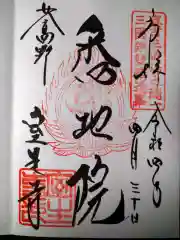 奉拝
令和四年
四月三十日
悉地院
女人高野
室生寺